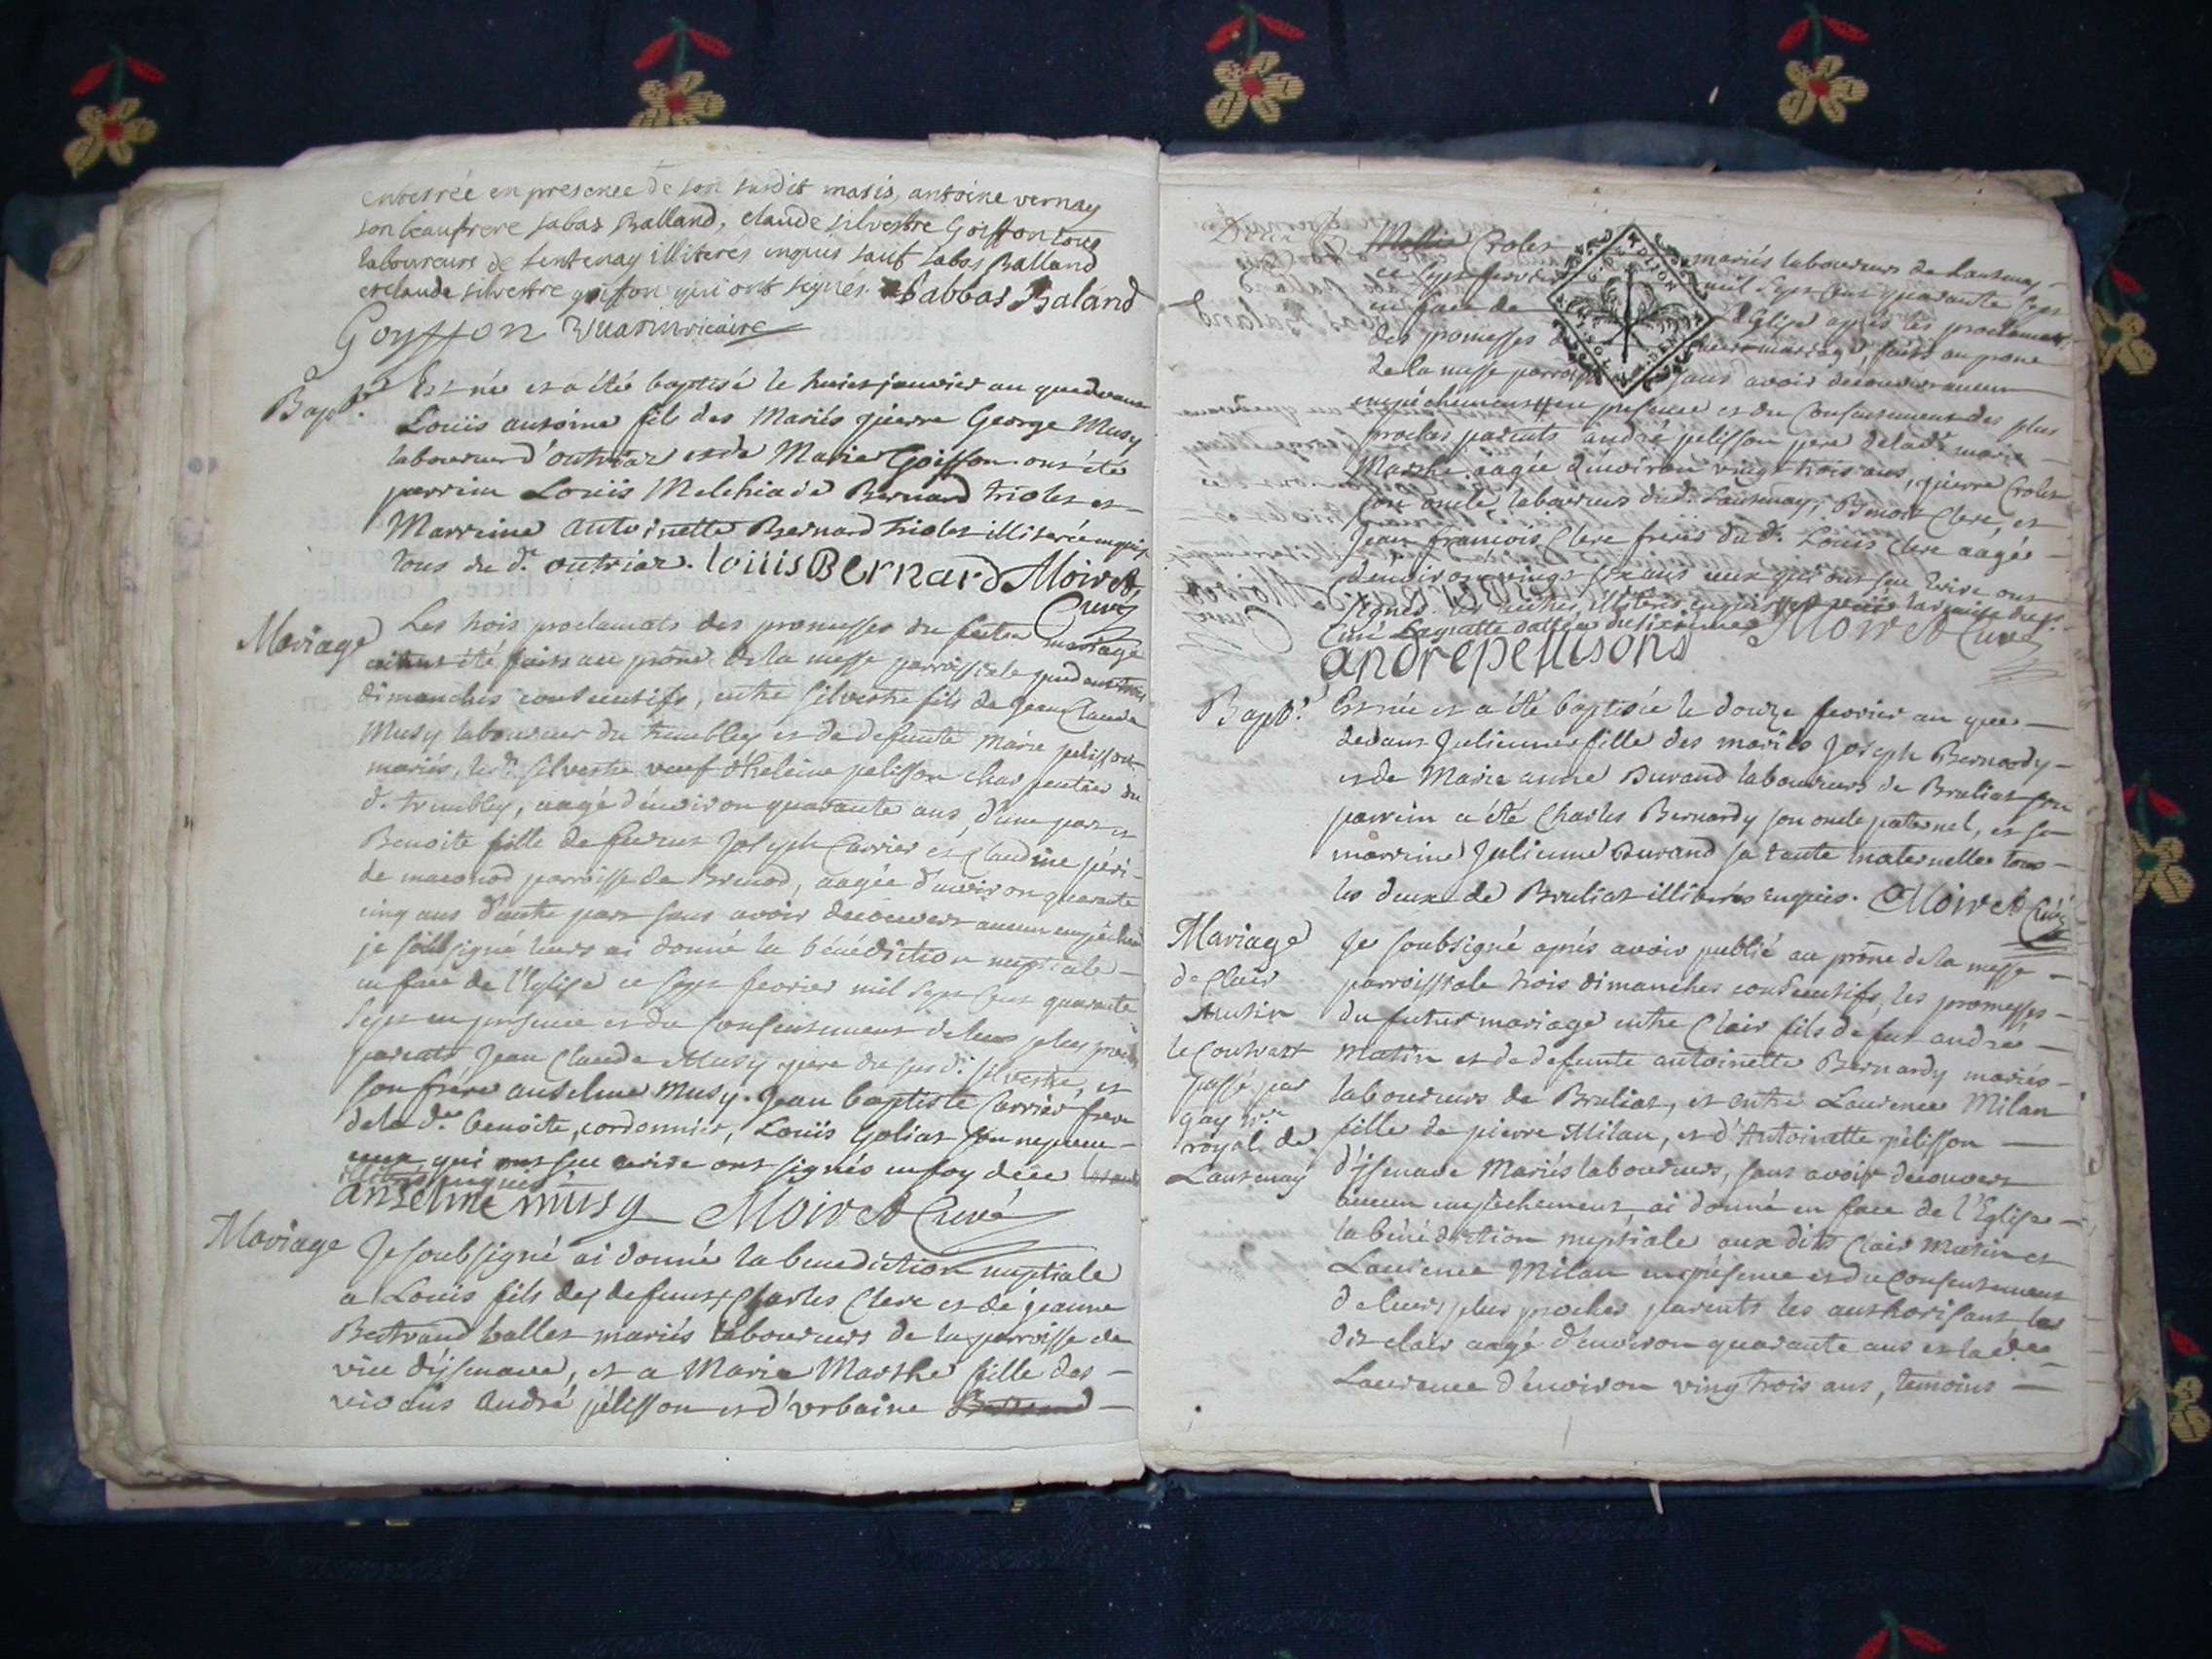 enterrée en presence de son susdit maris, antoine vernay
son beaufrere sabas Balland, claude silvestre Goiffon tous
laboureurs de lentenay illiteres enquis sauf sabas Balland
et claude silvestre goiffon qui ont signés. Sabbas Baland
Goyffon vicaire
Bapt.
Est né et a été baptisé le huict janvier an que devant
Loüis antoine fils des Mariés pierre George Musy
laboureur d'outriaz et de Marie Goiffon ont été
parrein Loüis Melchiade Bernard triolet et
Marreine antoinette Bernard triolet illiterée enquise
tous du d. outriaz. loüis Bernard Moiret,
Curé
Mariage
Les trois proclamats des promesses du futur mariage
aiant été faits au prône de la messe parroissiale pendant trois
dimanches consecutifs, entre silvestre fils de Jean Claude
Musy laboureur du tremblay et de defunte Marie pelisson
mariés, le d. silvestre veuf d'heleine pelisson charpentier du
d. trembley, aagé d'environ quarante ans, d'une part et
Benoite fille de feu Joseph Carrier et Claudine péri-
de maconod parroisse de Brenod, aagée d'environ quarante
cinq ans d'autre part sans avoir decouvert aucun empêchem
je soubsigné leurs ai donné la bénédiction nuptiale
en face de l'Eglise ce sept fevrier mil sept cent quarante
sept en presence et du consentement de leurs plus proches
parents, Jean Claude Musy pere du susd. silvestre, et
son frère anselme musy. Jean baptiste Carrier frere
de la d. benoite, cordonnier, Loüis Goliat son nepveu
eux qui ont sçu ecrire ont signés enfoy dece les autres
illiterés enquis
anselme musy Moiret Curé
Mariage
Je soubsigné ai donné la benediction nuptiale
a Louis fils des defunts Charles Clerc et de jeanne
Bertrand ballet mariés laboureurs de la parroisse de
vieu d'ysenave, et a Marie Marthe fille des
vivans André pélisson et d'urbaine Bertrand
Crolet mariés laboureurs de Lantenay
ce sept fevrier mil sept cent quarante sept
en face de l'Eglise après les proclamats
des promesses de mariage, faits au prone
de la messe parroiss sans avoir decouvert aucun
empêchement en presence et du consentement des plus
proches parents andré pelisson pere de la d. marie
Marthe aagée d'environ vingt trois ans, pierre Crolet
son oncle laboureurs dud. Lantenay, Benoit Clerc, et
Jean françois Clerc freres du d. Louis Clerc aagé
d'environ vingt six ans eux qui ont sçu ecrire ont
signés les autres illiterés enquis
Moiret Curé
andre pelisons
Bapt.
Est née et a été baptisée le douze fevrier an que
dedans Julienne fille des mariés Joseph Bernardy
et de Marie anne Durand laboureurs de Bruliat son
parrein a été Charles Bernardy son oncle paternel, et sa
marreine Julienne Durand sa tante maternelle tous
les deux de Bruliat illiterés enquis. Moiret Curé
Mariage
de Clair
Mutin
le Contract
passé par
Gay n.re
royal de
Lantenay
Je soubsigné aprés avoir publié au prône de la messe
parroissiale trois dimanches consecutifs, les promesses
du futur mariage entre Clair fils de feu andré
Mutin et de defunte antoinette Bernardy mariés
laboureurs de Bruliat, et entre Laurence Milan
fille de pierre Milan, et d'Antoinette pélisson
d'ysenave Mariés laboureurs, sans avoir decouvert
aucun empêchement ai donné en face de l'Eglise
la bénédiction nuptiale aux dits Clair Mutin et
Laurence Milan en présence et du consentement
de leurs plus proches parents les authorisant le
dit clair aagé d'environ quarante ans et la d.e
Laurence d'environ vingt trois ans, temoins